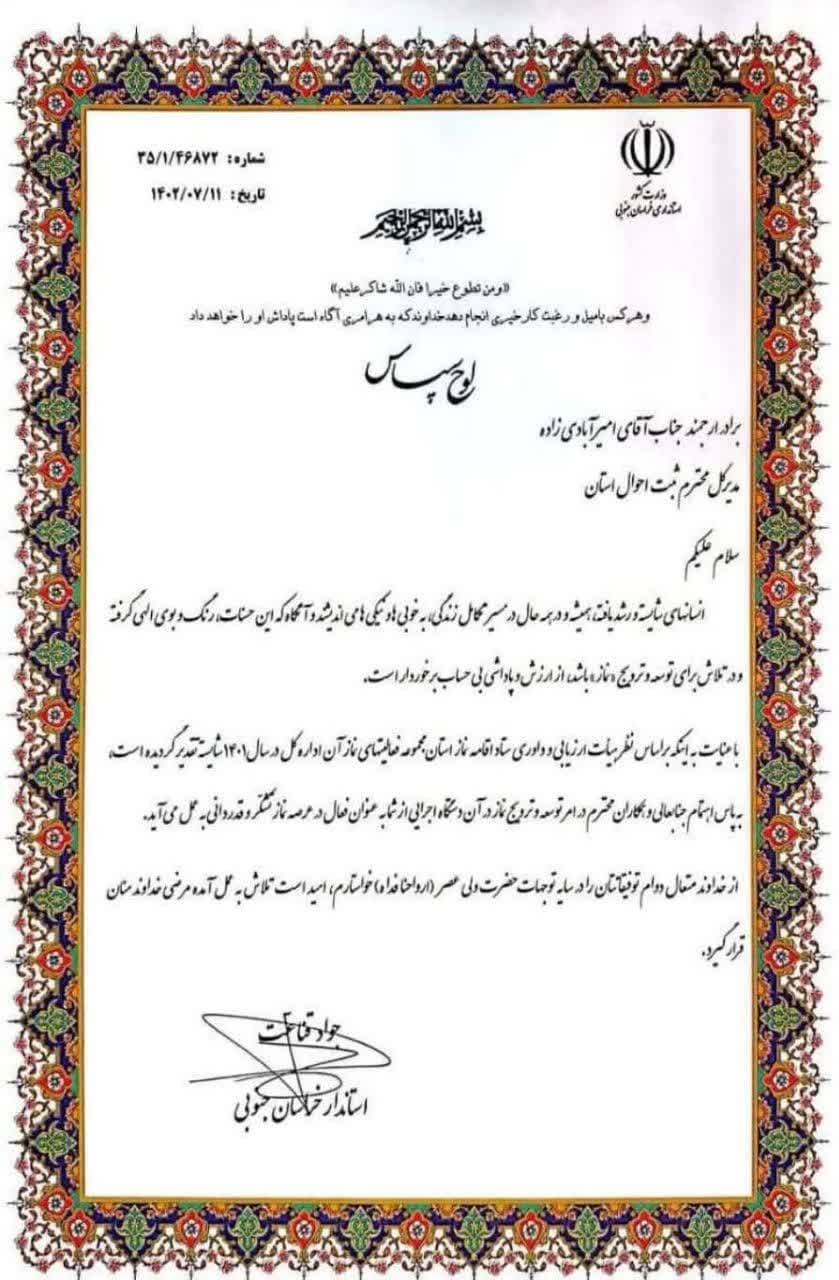 وزارت کشور
استانداری خراسان جنوبی
شماره: ۳۵/۱/۴۶۸۷۲
تاریخ: ۱۴۰۲/۰۷/۱۱
بسم الله الرحمن الرحیم
«ومن تطوع خیرا فان الله شاکر علیم»
وهرکس بامیل و رغبت کار خیری انجام دهد خداوند که به هر امری آگاه است پاداش او را خواهد داد
لوح سپاس
برادر ارجمند جناب آقای امیرآبادی زاده
مدیرکل محترم ثبت احوال استان
سلام علیکم
انسانهای شایسته و رشد یافته، همیشه و در همه حال در مسیر تکامل زندگی، به خوبی ها و نیکی ها می اندیشند و آنگاه که این حسنات، رنگ و بوی الهی گرفته
و در تلاش برای توسعه و ترویج «نماز» باشد، از ارزش و پاداشی بی حساب برخوردار است.
با عنایت به اینکه بر اساس نظر هیأت ارزیابی و داوری ستاد اقامه نماز استان مجموعه فعالیتهای نماز آن اداره کل در سال ۱۴۰۱ شایسته تقدیر گردیده است،
به پاس اهتمام جنابعالی و همکاران محترم در امر توسعه و ترویج نماز در آن دستگاه اجرایی از شما به عنوان فعال در عرصه نماز تشکر و قدردانی به عمل می آید.
از خداوند متعال دوام توفیقاتتان را در سایه توجهات حضرت ولی عصر (ارواحنا فداه) خواستارم، امید است تلاش به عمل آمده مرضی خداوند منان
قرار گیرد.
جواد قناعت
استاندار خراسان جنوبی